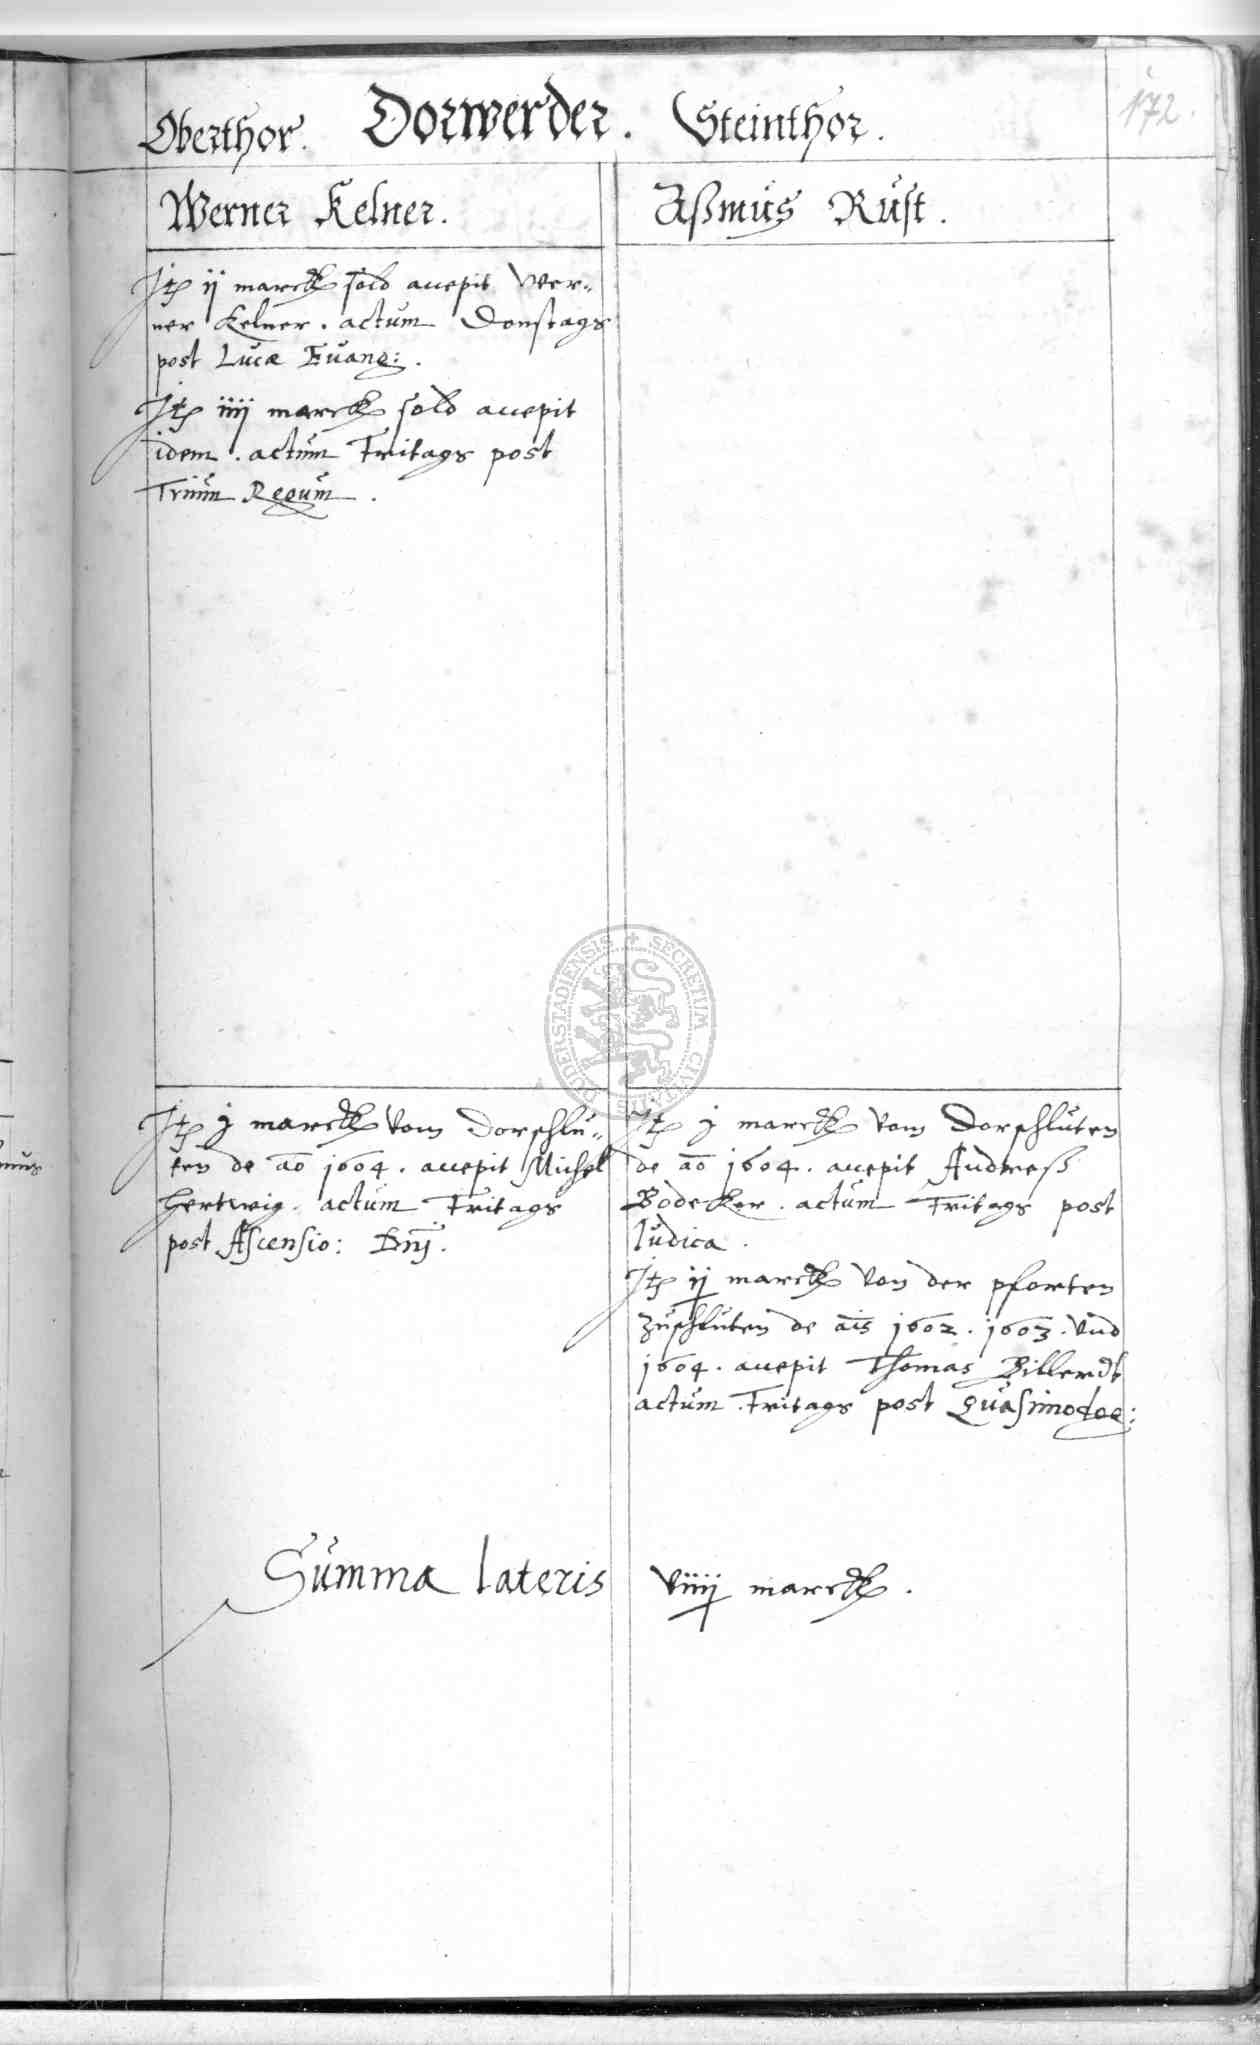 172.
Oberthor. Dorwerder. Steinthor.
Werner Kelner.
Jtem ij marck sold accepit Wer-
ner Kelner. actum Donstags
post Lucæ Euang:.
Jtem iiij marck sold accepit
idem. actum Fritags post
Trium Regum.
Jtem j marck vom Dorschlu-
ten de ao 1604. accepit Michel
Hertwig. actum Fritags
post Ascensio: Dnj.
Aßmus Rust.
Jtem j marck vom Dorschluten
de ao 1604. accepit Andreß
Bodecker. actum Fritags post
Iudica.
Jtem ij marck von der pforten
zuschluten de ais 1602. 1603. vnd
1604. accepit Thomas Billerdt
actum Fritags post Quasimodog:
Summa lateris viiij marck.
SECRETUM CIVITATIS DUDERSTADIENSIS
mus